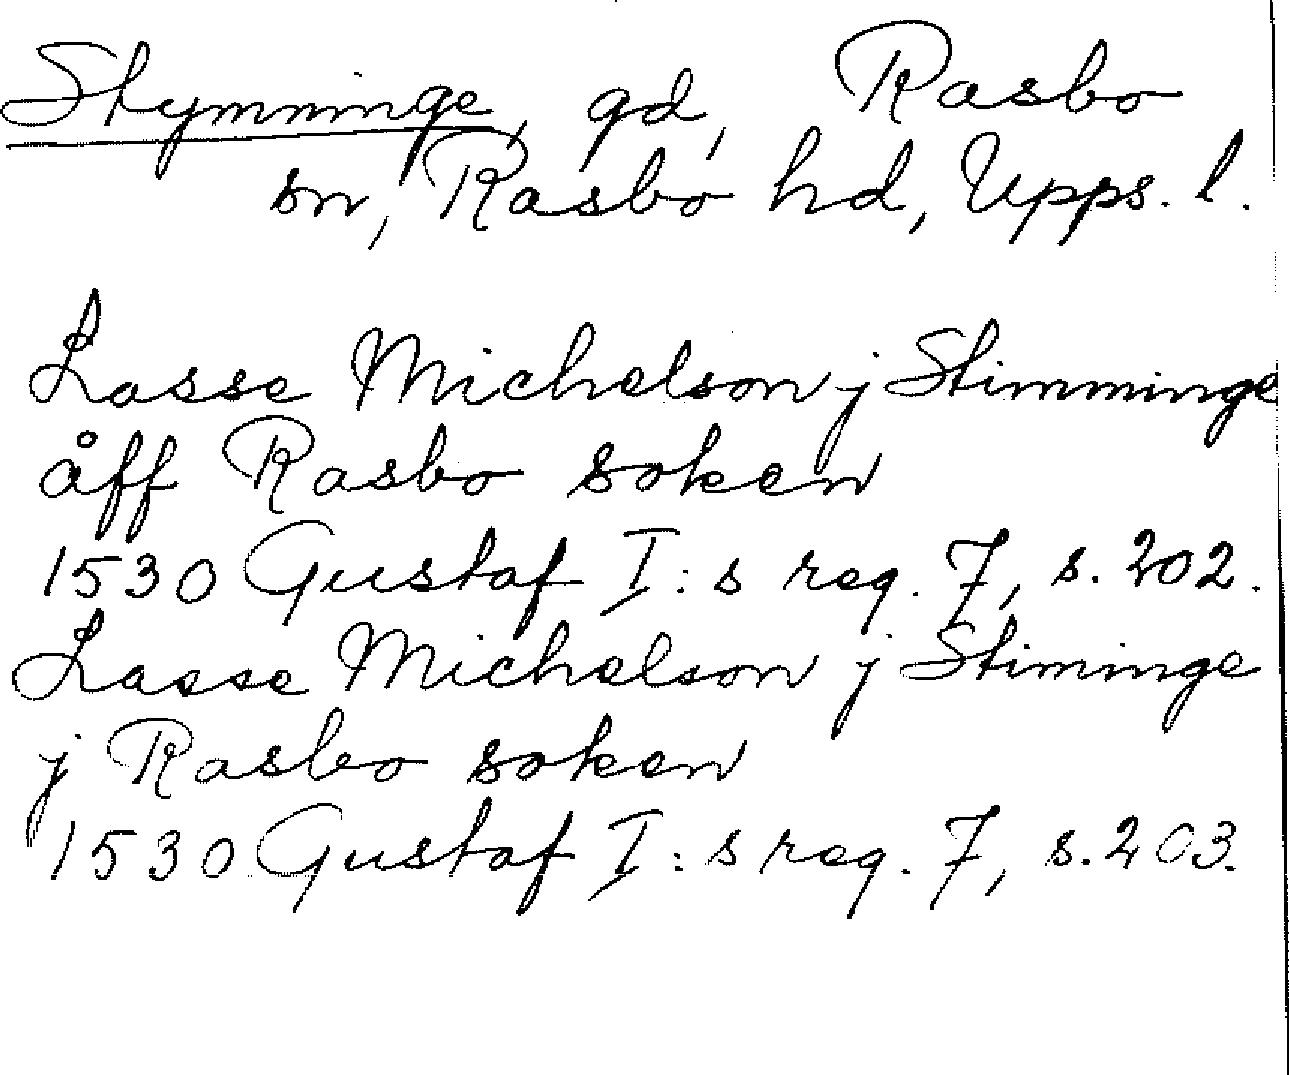 Stymninge, gd, Rasbo
sn, Rasbo hd, Upps. l.
Lasse Michelson j Stimminge
åff Rasbo soken
1530 Gustaf I:s reg. 7, s. 202.
Lasse Michelson j Stiminge
j Rasbo soken
1530 Gustaf I:s reg. 7, s. 203.